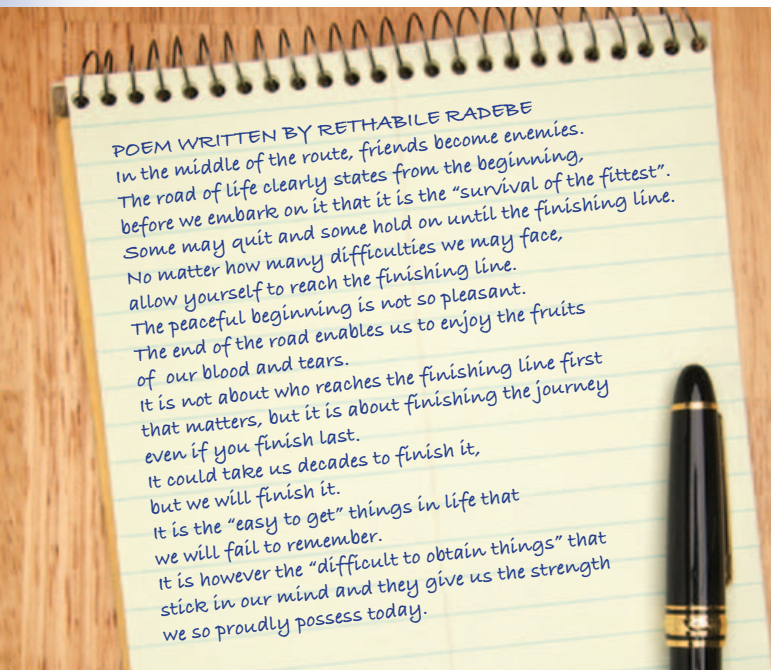 POEM WRITTEN BY RETHABILE RADEBE
In the middle of the route, friends become enemies.
The road of life clearly states from the beginning,
before we embark on it that it is the “survival of the fittest”.
Some may quit and some hold on until the finishing line.
No matter how many difficulties we may face,
allow yourself to reach the finishing line.
The peaceful beginning is not so pleasant.
The end of the road enables us to enjoy the fruits
of our blood and tears.
It is not about who reaches the finishing line first
that matters, but it is about finishing the journey
even if you finish last.
It could take us decades to finish it,
but we will finish it.
It is the “easy to get” things in life that
we will fail to remember.
It is however the “difficult to obtain things” that
stick in our mind and they give us the strength
we so proudly possess today.